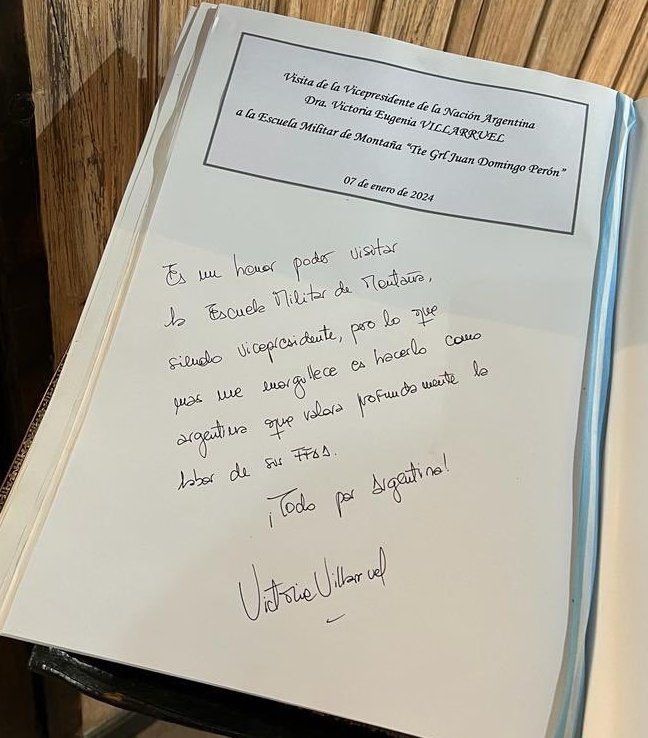 Visita de la Vicepresidente de la Nación Argentina
Dra. Victoria Eugenia VILLARRUEL
a la Escuela Militar de Montaña "Tte Grl Juan Domingo Perón"
07 de enero de 2024
Es un honor poder visitar
la Escuela Militar de Montaña,
siendo vicepresidente, pero lo que
mas me enorgullece es hacerlo como
argentina que valora profundamente la
labor de sus FFAA.
¡Todo por Argentina!
Victoria Villarruel